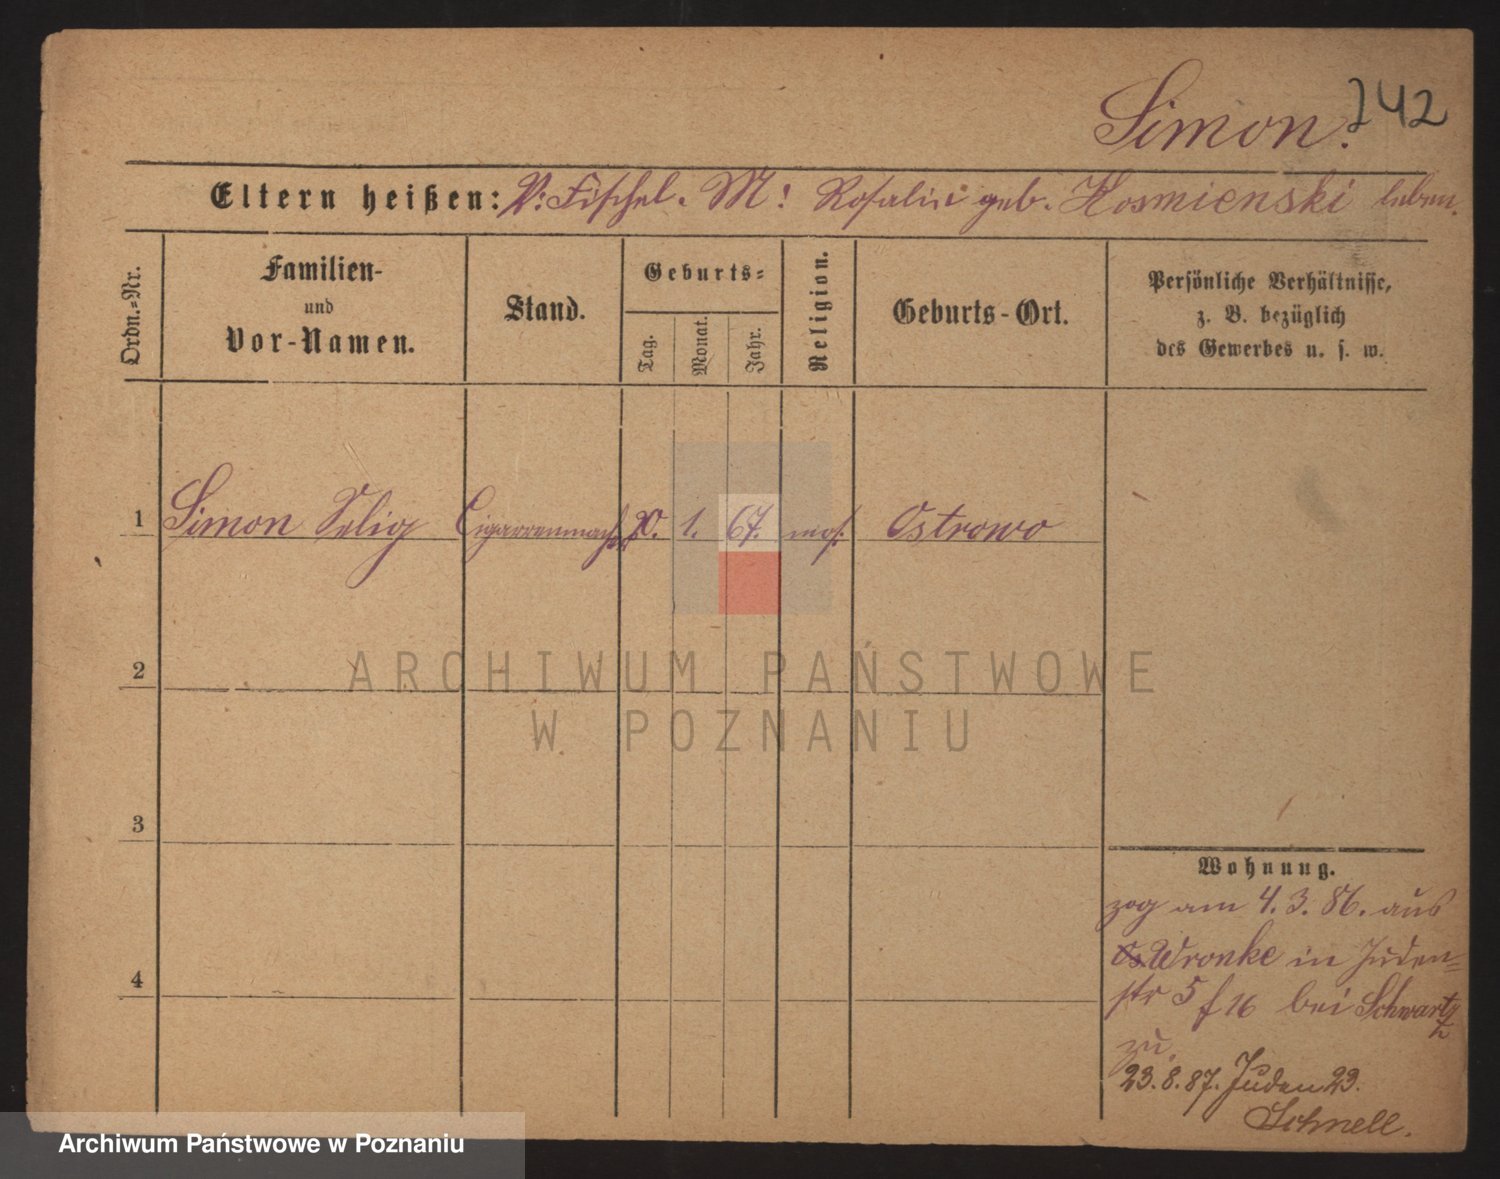 Simon. 242
Eltern heißen: V: Fischel. M: Rosalie geb. Kosmienski leben.
Ordn.-Nr.
Familien-
und
Vor-Namen.
Stand.
Geburts-
Tag.
Monat.
Jahr.
Religion.
Geburts-Ort.
Persönliche Verhältnisse,
z. B. bezüglich
des Gewerbes u. s. w.
1 Simon Selig Cigarrenmacher 20. 1. 67. mos. Ostrowo
2
3
4
Wohnung.
zog am 4. 3. 86. aus
Wronke in Juden-
str 5 f 16 bei Schwartz
zu.
23. 8. 87. Juden 23.
Schnell.
ARCHIWUM PAŃSTWOWE
W POZNANIU
Archiwum Państwowe w Poznaniu